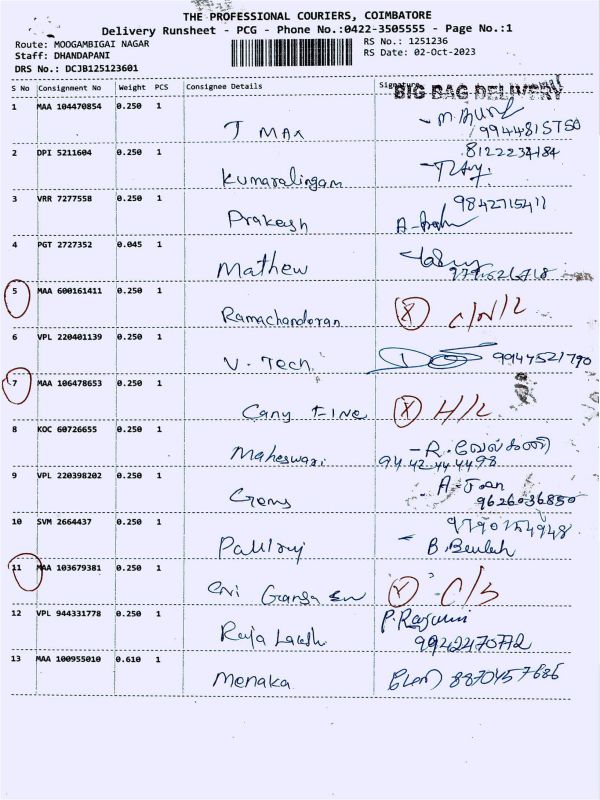 THE PROFESSIONAL COURIERS, COIMBATORE
Delivery Runsheet - PCG - Phone No.:0422-3505555 - Page No.:1
Route: MOOGAMBIGAI NAGAR
RS No.: 1251236
Staff: DHANDAPANI
RS Date: 02-Oct-2023
DRS No.: DCJB125123601
S No Consignment No Weight PCS Consignee Details Signature
BIG BAG DELIVERY
1 MAA 104470854 0.250 1
T MAX
2 DPI 5211604 0.250 1
8122234184
Kumaralingam
3 VRR 7277558 0.250 1
9842715411
Prakesh
4 PGT 2727352 0.045 1
Mathew
5 MAA 600161411 0.250 1
Ramachandaran X C/N/L
6 VPL 220401139 0.250 1
V. Tech 9944521790
7 MAA 106478653 0.250 1
Cany Fine X H/L
8 KOC 60726655 0.250 1
Maheswari R. வேல்கனி
94 42 44 4498
9 VPL 220398202 0.250 1
Gems A-Jean
9626036850
10 SVM 2664437 0.250 1
9790154948
Paulraj B. Beulah
11 MAA 103679381 0.250 1
Sri Ganga
12 VPL 944331778 0.250 1
P. Rajeswari
Raja Laksh 9942247072
13 MAA 100955010 0.610 1
Menaka 8870457686